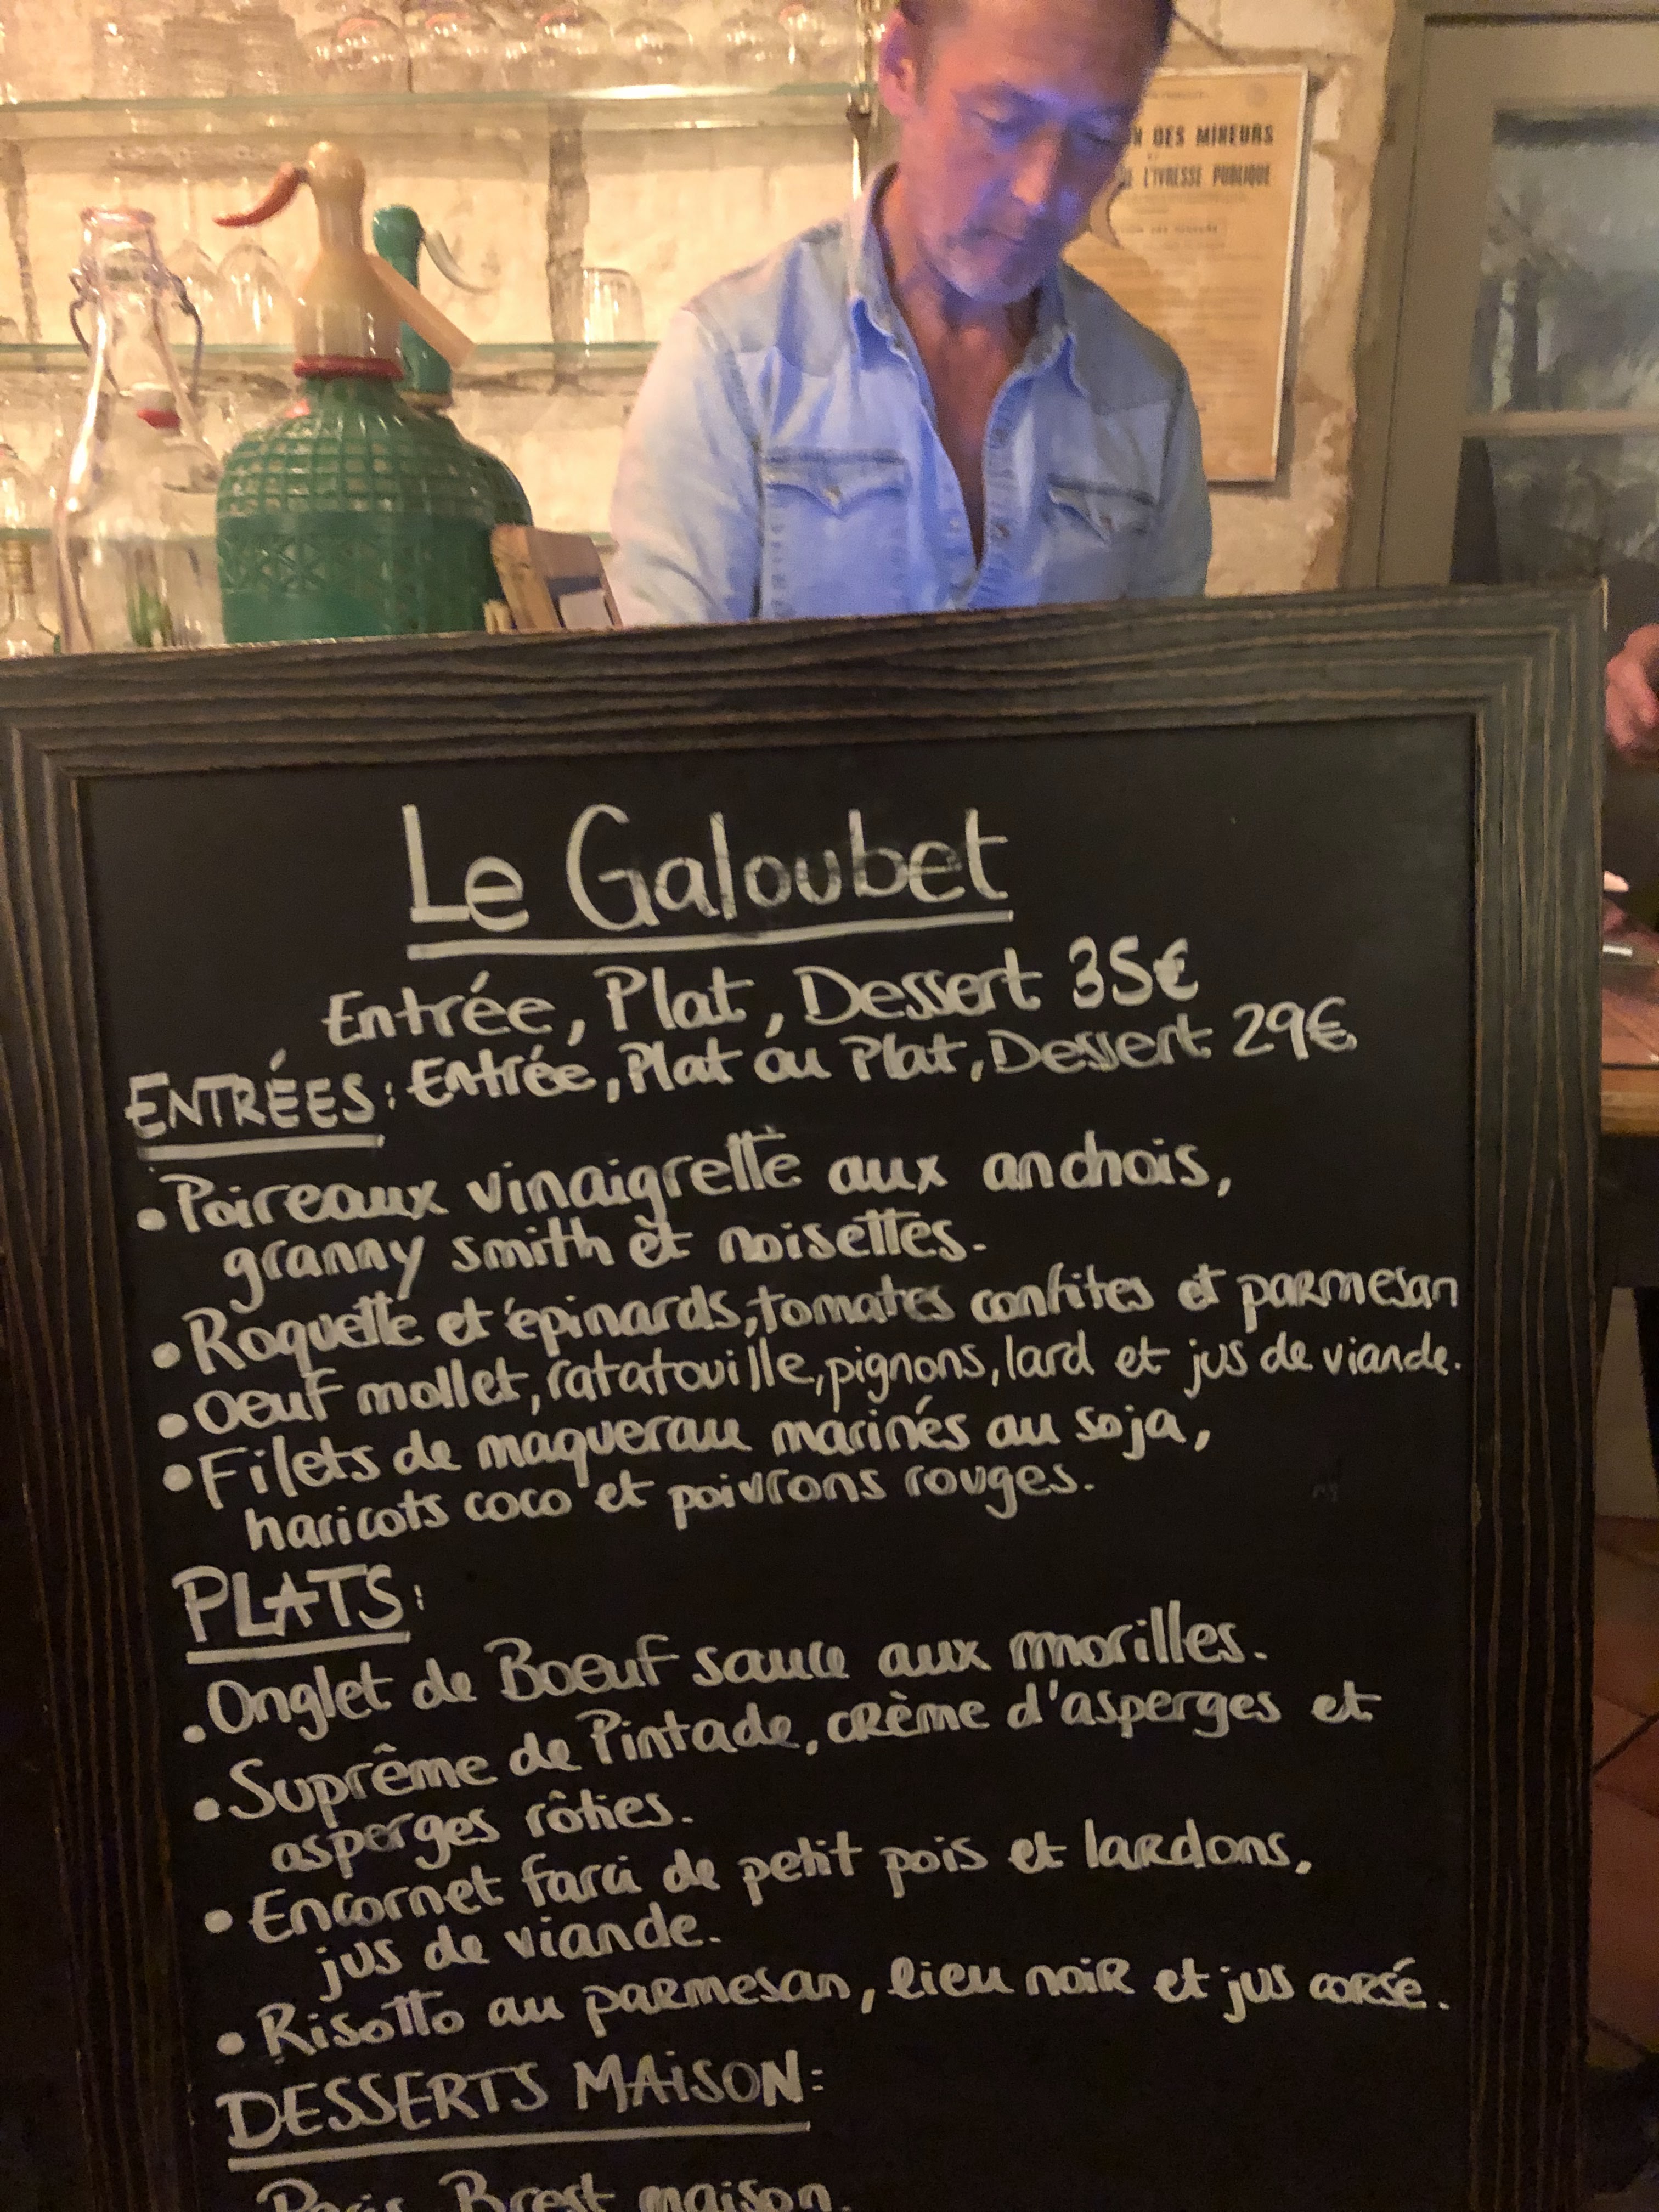 DES MINEURS
L'IVRESSE PUBLIQUE
Le Galoubet
Entrée, Plat, Dessert 35€
ENTRÉES: Entrée, Plat ou Plat, Dessert 29€
• Poireaux vinaigrette aux anchois,
granny smith et noisettes.
• Roquette et épinards, tomates confites et parmesan
• Oeuf mollet, ratatouille, pignons, lard et jus de viande.
• Filets de maquerau marinés au soja,
haricots coco et poivrons rouges.
PLATS:
• Onglet de Boeuf sauce aux morilles.
• Suprême de Pintade, crème d'asperges et
asperges rôties.
• Encornet farci de petit pois et lardons,
jus de viande.
• Risotto au parmesan, lieu noir et jus corsé.
DESSERTS MAISON:
Paris Brest maison.